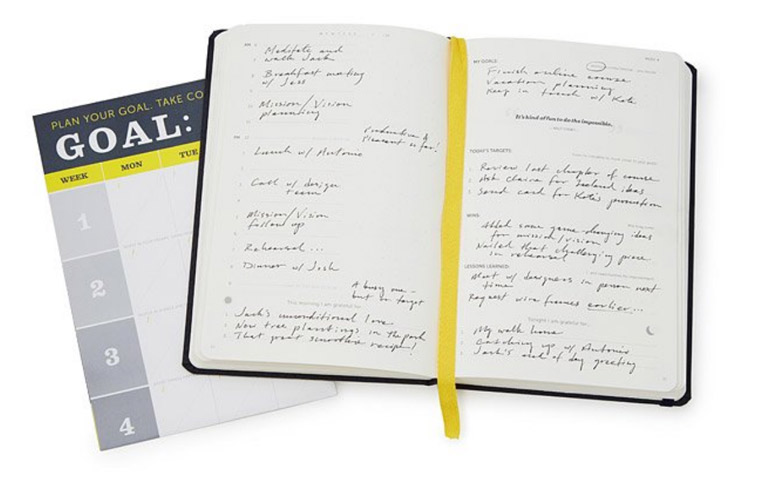 PLAN YOUR GOAL. TAKE CO
GOAL:
WEEK MON TUE
1
2
3
4
Meditate and
walk Jack
Breakfast meeting
w/ Jess
Mission/Vision
planning
Productive &
pleasant so far!
Lunch w/ Antonio
Call w/ design
team
Mission/Vision
follow up
Rehearsal ...
Dinner w/ Josh
A busy one -
but on target
This morning I am grateful for
Jack's unconditional love
New tree plantings in the park
That great smoothie recipe!
MY GOALS:
Finish online course
Vacation planning
Keep in touch w/ Kate
It's kind of fun to do the impossible.
TODAY'S TARGETS:
Review last chapter of course
Ask Claire for Iceland ideas
Send card for Kate's promotion
WINS:
Added some game-changing ideas
for mission/vision
Nailed that challenging piece
in rehearsal
LESSONS LEARNED:
Meet w/ designers in person next
time
Request wire frames earlier...
Tonight I am grateful for
My walk home
Catching up w/ Antonio
Jack's end of day greeting